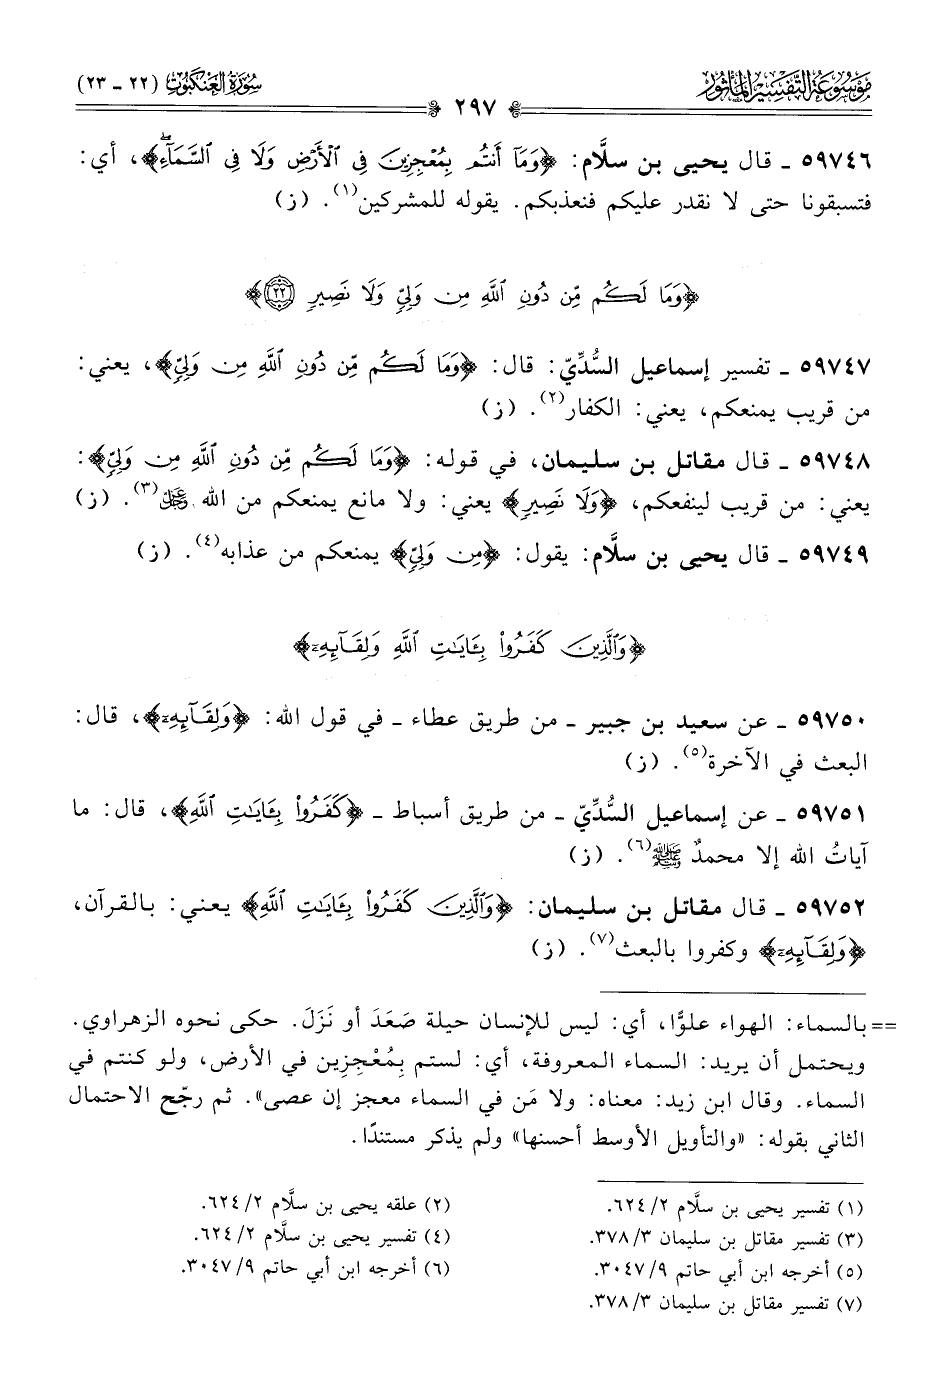 مَوْسُوعَة التَّفْسِير المَأْثُور
٢٩٧
سُورَة العَنكَبُوت (٢٢ - ٢٣)
٥٩٧٤٦ - قال يحيى بن سلَّام: ﴿وَمَآ أَنتُم بِمُعْجِزِينَ فِى ٱلْأَرْضِ وَلَا فِى ٱلسَّمَآءِۖ﴾، أي:
فتسبقونا حتى لا نقدر عليكم فنعذبكم. يقوله للمشركين(١). (ز)
﴿وَمَا لَكُم مِّن دُونِ ٱللَّهِ مِن وَلِىٍّ وَلَا نَصِيرٍ ٢٢﴾
٥٩٧٤٧ - تفسير إسماعيل السُّدِّيّ: قال: ﴿وَمَا لَكُم مِّن دُونِ ٱللَّهِ مِن وَلِىٍّ﴾، يعني:
من قريب يمنعكم، يعني: الكفار(٢). (ز)
٥٩٧٤٨ - قال مقاتل بن سليمان، في قوله: ﴿وَمَا لَكُم مِّن دُونِ ٱللَّهِ مِن وَلِىٍّ﴾:
يعني: من قريب لينفعكم، ﴿وَلَا نَصِيرٍ﴾ يعني: ولا مانع يمنعكم من الله ﷿(٣). (ز)
٥٩٧٤٩ - قال يحيى بن سلَّام: يقول: ﴿مِن وَلِىٍّ﴾ يمنعكم من عذابه(٤). (ز)
﴿وَٱلَّذِينَ كَفَرُوا۟ بِـَٔايَـٰتِ ٱللَّهِ وَلِقَآئِهِۦٓ﴾
٥٩٧٥٠ - عن سعيد بن جبير - من طريق عطاء - في قول الله: ﴿وَلِقَآئِهِۦٓ﴾، قال:
البعث في الآخرة(٥). (ز)
٥٩٧٥١ - عن إسماعيل السُّدِّيّ - من طريق أسباط - ﴿كَفَرُوا۟ بِـَٔايَـٰتِ ٱللَّهِ﴾، قال: ما
آياتُ الله إلا محمدٌ ﷺ(٦). (ز)
٥٩٧٥٢ - قال مقاتل بن سليمان: ﴿وَٱلَّذِينَ كَفَرُوا۟ بِـَٔايَـٰتِ ٱللَّهِ﴾ يعني: بالقرآن،
﴿وَلِقَآئِهِۦٓ﴾ وكفروا بالبعث(٧). (ز)
== بالسماء: الهواء علوًّا، أي: ليس للإنسان حيلة صَعَدَ أو نَزَلَ. حكى نحوه الزهراوي.
ويحتمل أن يريد: السماء المعروفة، أي: لستم بِمُعْجِزِين في الأرض، ولو كنتم في
السماء. وقال ابن زيد: معناه: ولا مَن في السماء معجز إن عصى». ثم رجّح الاحتمال
الثاني بقوله: «والتأويل الأوسط أحسنها» ولم يذكر مستندًا.
(١) تفسير يحيى بن سلَّام ٢/ ٦٢٤.
(٢) علقه يحيى بن سلَّام ٢/ ٦٢٤.
(٣) تفسير مقاتل بن سليمان ٣/ ٣٧٨.
(٤) تفسير يحيى بن سلَّام ٢/ ٦٢٤.
(٥) أخرجه ابن أبي حاتم ٩/ ٣٠٤٧.
(٦) أخرجه ابن أبي حاتم ٩/ ٣٠٤٧.
(٧) تفسير مقاتل بن سليمان ٣/ ٣٧٨.